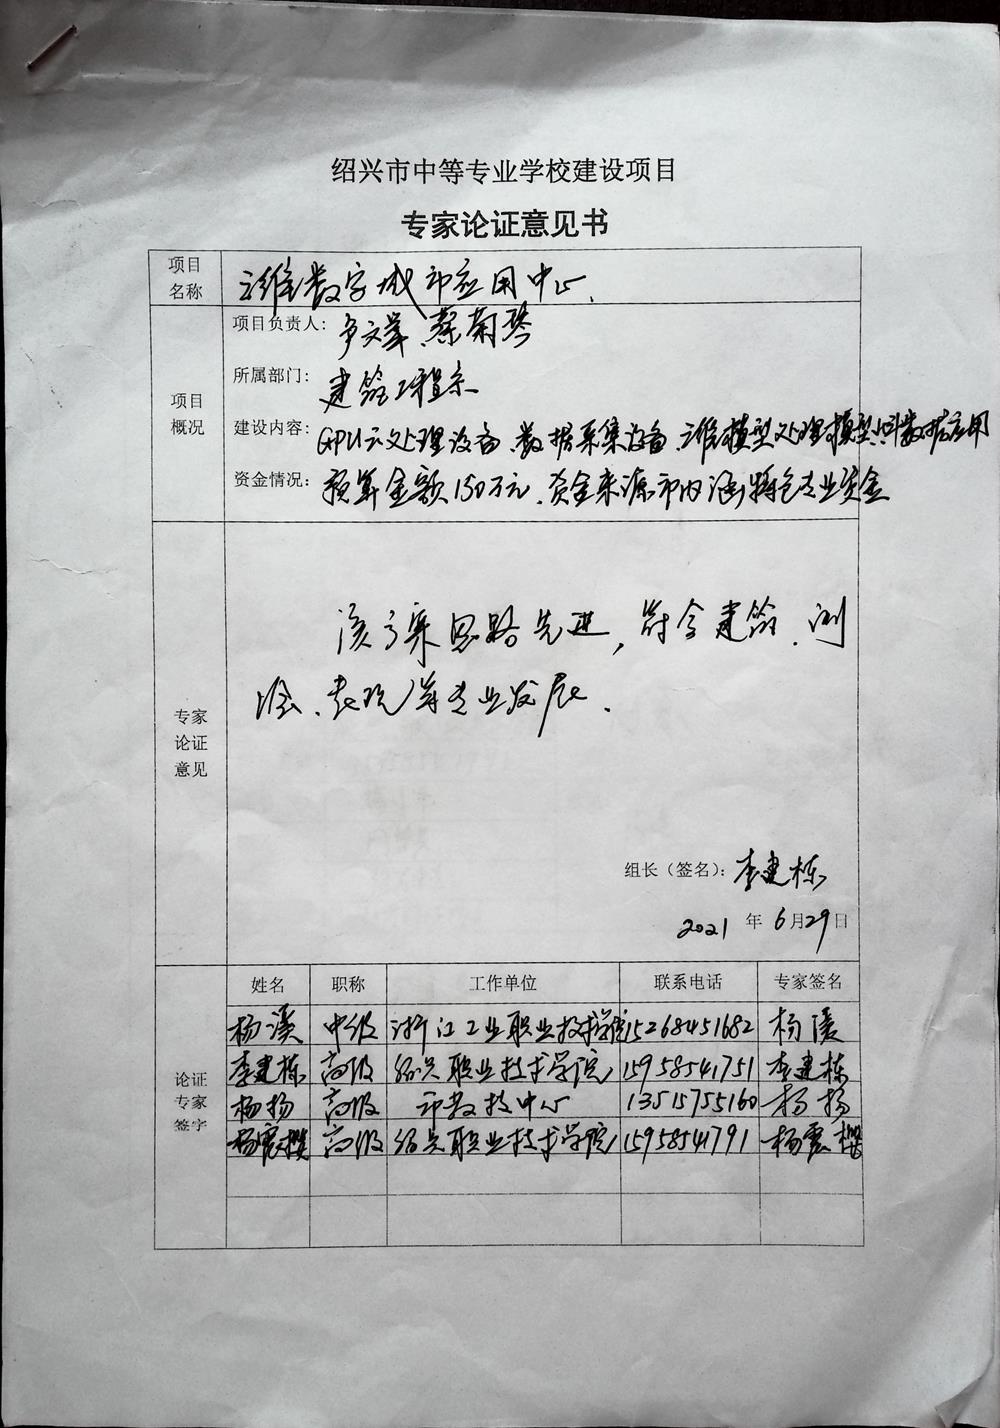 绍兴市中等专业学校建设项目
专家论证意见书
项目名称 三维数字城市应用中心.
项目概况
项目负责人: 文 蔡菊琴
所属部门: 建筑工程系
建设内容: GPU云处理设备、数据采集设备、三维模型处理模型 数据应用
资金情况: 预算金额150万元、资金来源市内涵特色专业资金
专家论证意见
该方案思路先进，符合建筑、测
绘、表现等专业发展.
组长（签名）: 李建栋
2021 年 6月29日
论证专家签字
姓名 职称 工作单位 联系电话 专家签名
杨溪 中级 浙江工业职业技术学院 15268451682 杨溪
李建栋 高级 绍兴职业技术学院 15958541751 李建栋
杨扬 高级 市教技中心 13515755160 杨扬
杨震樑 高级 绍兴职业技术学院 15958541791 杨震樑